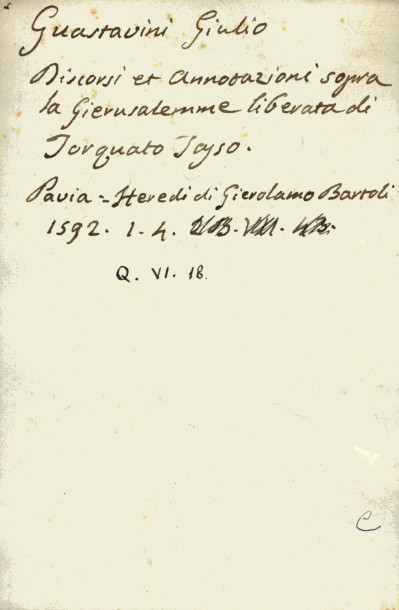 Guastavini Giulio
Discorsi et Annotazioni sopra
la Gierusalemme liberata di
Torquato Tasso.
Pavia = Heredi di Gierolamo Bartoli
1592. 1. 4.
Q. VI. 18.
C